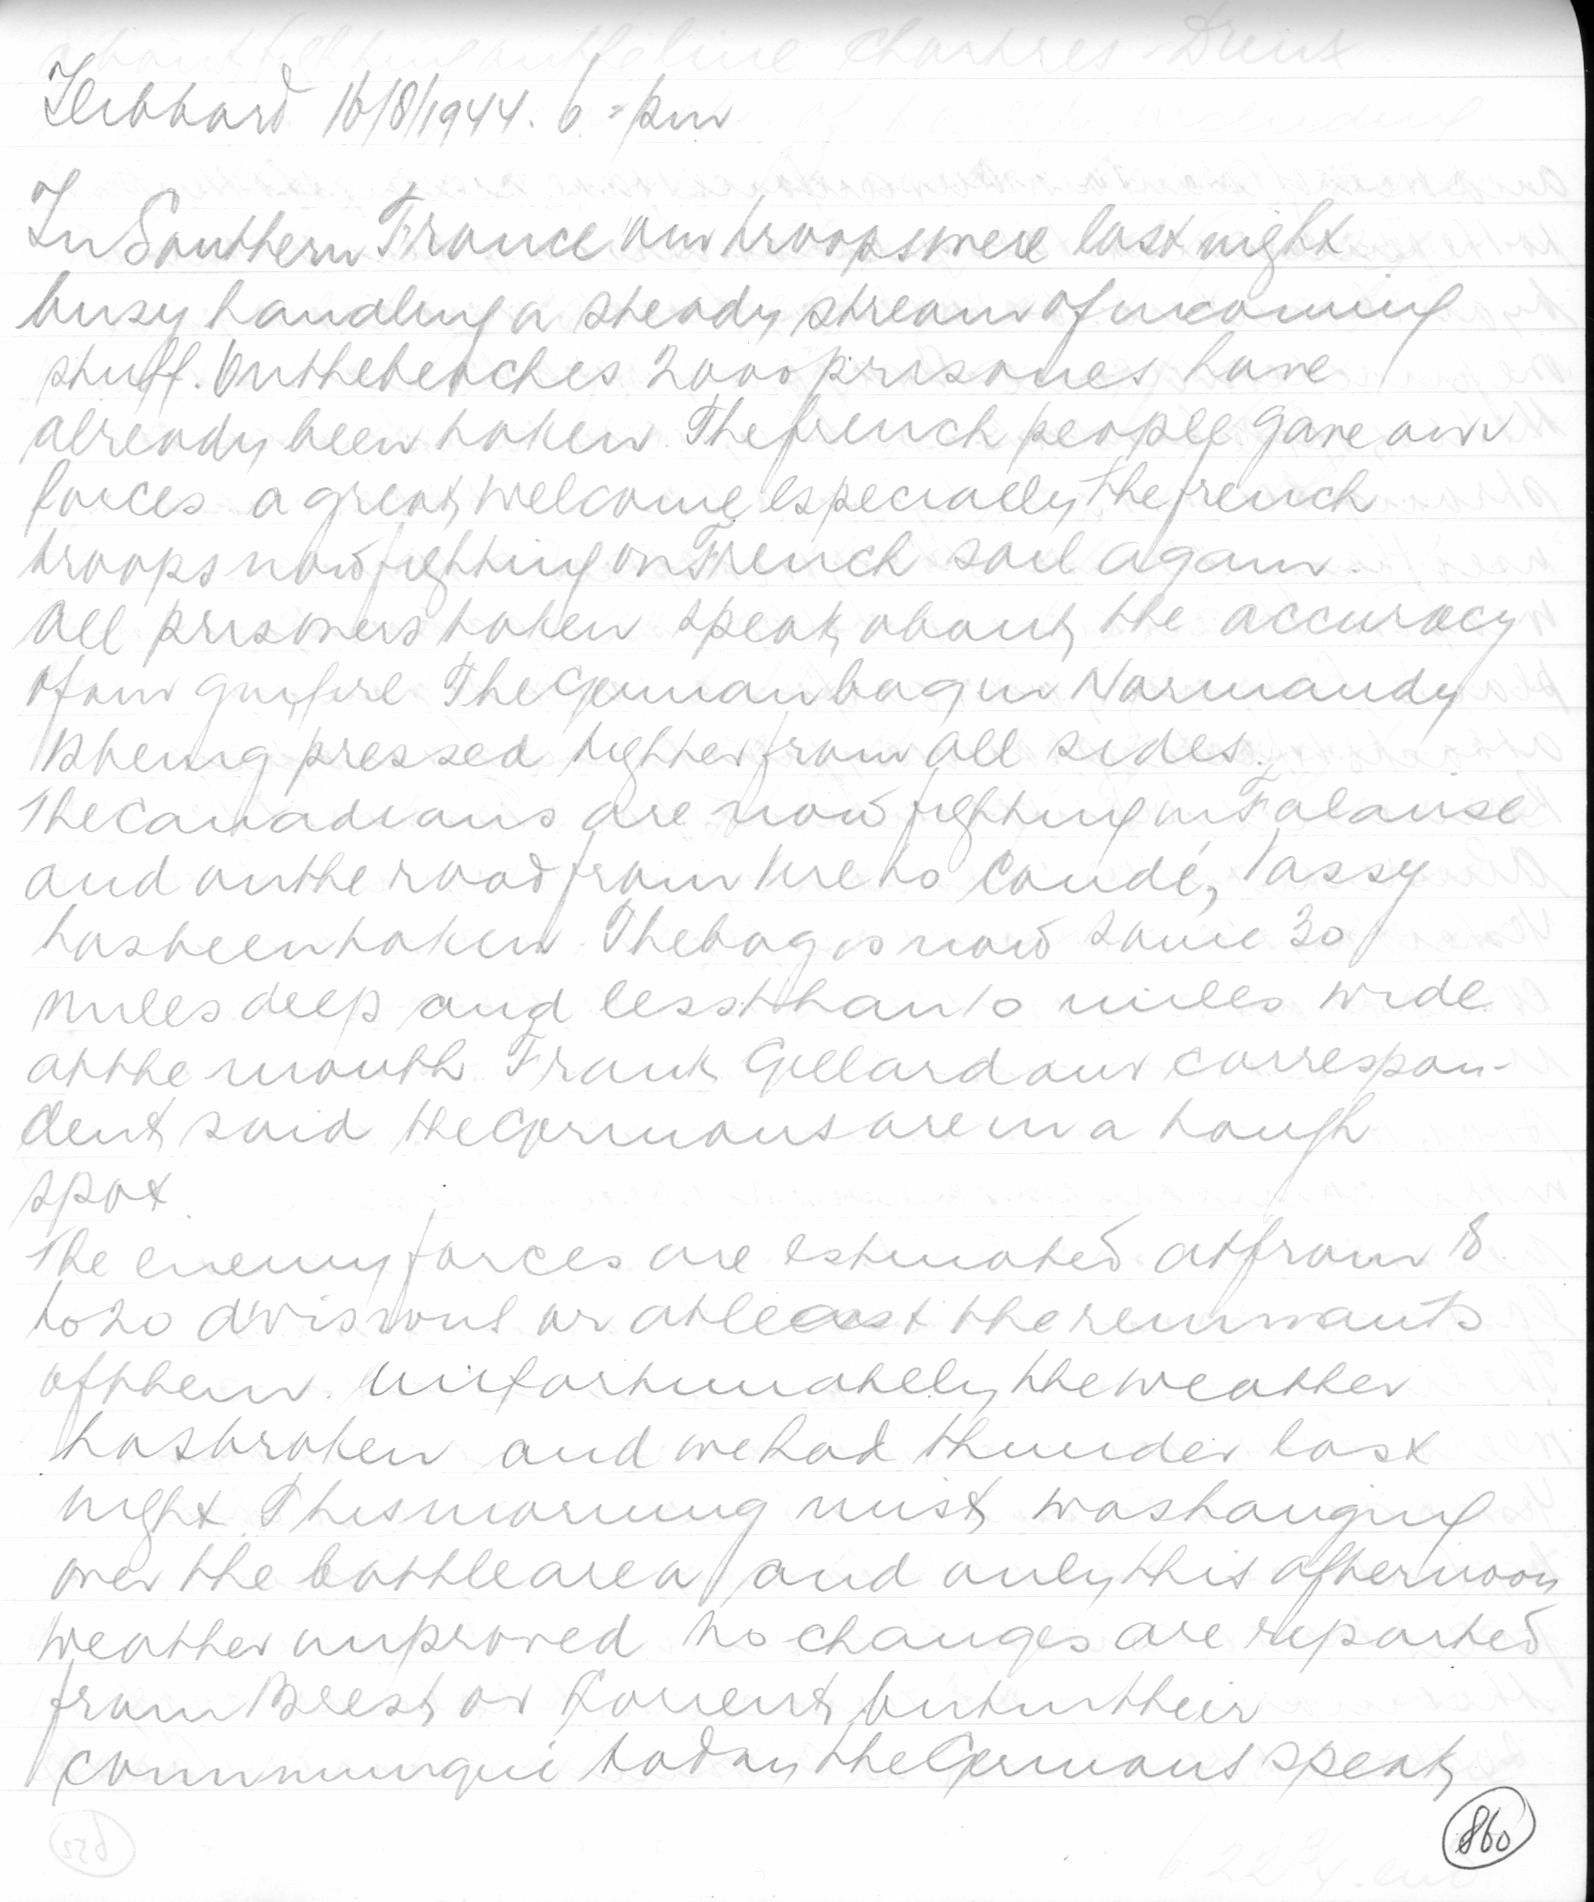 16/8/1944. 6 = pm
In Southern France our troops were last night
busy handling a steady stream of incoming
stuff. On the beaches 2000 prisones have
already been taken. The french people gave our
forces a great welcome especially the french
troops now fighting on French soil again.
All prisoners taken speak about the accuracy
of our gunfire. The German bag in Normandy
is being pressed tighter from all sides.
The Canadians are now fighting in Falaise
and on the road from Vire to Condé, Vassy
has been taken. The bag is now some 30
miles deep and less than 10 miles wide
at the mouth. Frank Gillard our correspon-
dent said the Germans are in a tough
spot.
The enemy forces are estimated at from 18
to 20 divisions or at least the remnants
of them. Unfortunately the weather
has broken and we had thunder last
night. This morning mist was hanging
over the battle area and only this afternoon
weather improved no changes are reported
from Brest or Lorient but in their
communiqué today the Germans speak
860